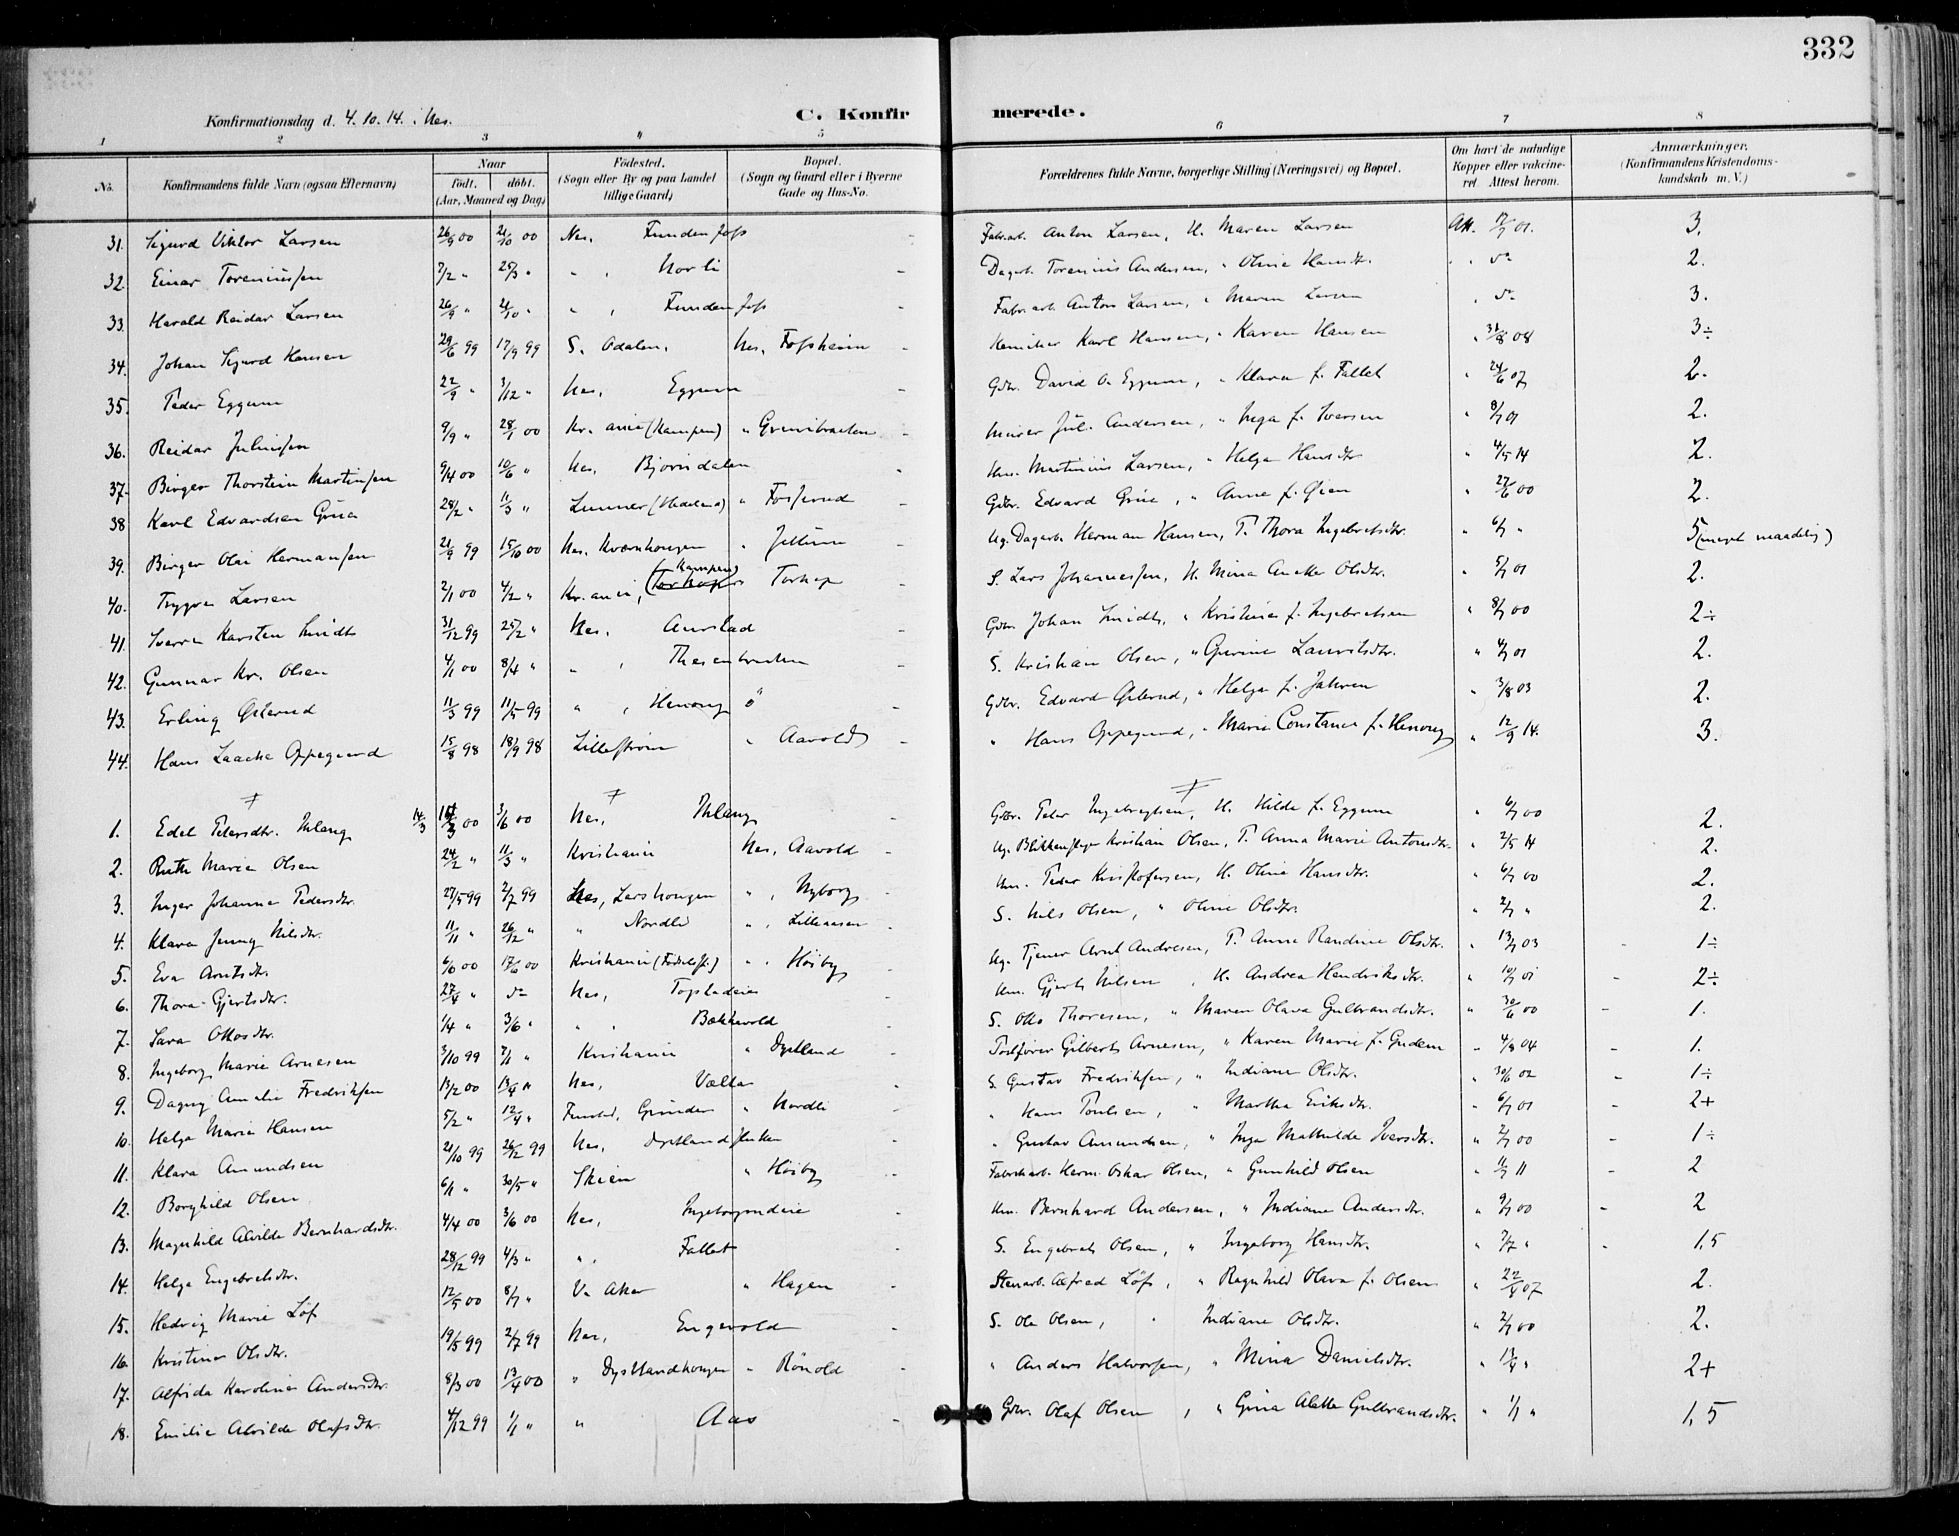 332
Konfirmationsdag d. 4.10.14. Nes.
C. Konfirmerede.
1 2 3 " 5 6 7 8
No. Konfirmandens fulde Navn (ogsaa Efternavn) Naar født. døbt. (Aar, Maaned og Dag) Fødested. (Sogn eller By og paa Landet tillige Gaard) Bopæl. (Sogn og Gaard eller i Byerne Gade og Hus-No. Forældrenes fulde Navne, borgerlige Stilling (Næringsvei) og Bopæl. Om havt de naturlige Kopper eller vakcineret. Attest herom. Anmærkninger. (Konfirmandens Kristendomskundskab m. V.)
31. Sigurd Viktor Larsen 26/9 00 21/10 00 Nes, Funderfoss Fabr.arb. Anton Larsen, H. Maren Larsen Att. 01. 3.
32. Einar Toreniussen 7/2 " 25/3 " " , Norli Dagarb. Torenius Andersen, " Oline Hansdtr. 2.
33. Harald Reidar Larsen 26/9 " 21/10 " " , Funderfoss Fabr.arb. Anton Larsen, " Maren Larsen 3.
34. Johan Sigurd Hansen 29/6 99 17/9 99 S. Odalen, Nes, Fossheim Karl Hansen, " Karen Hansen " 31/8 08 3÷
35. Peder Eggum 22/9 " 3/12 " Nes, Eggum Gdbr. David O. Eggum, " Klara f. Fallet " 24/6 07 2.
36. Reidar Juliussen 9/9 " 28/1 00 Kr.ania (Kampen) " Murer Jul. Andersen, " Inga f. Iversen " 8/7 01 2.
37. Birger Thorstein Martinsen 9/4 00 10/6 " Nes, Bjørndalen Hm. Martinius Larsen, " Helga Hansdtr " 4/5 14 2.
38 Karl Edvardsen Grua 28/2 " 11/3 " Lunner (Hadeland) " Fosserud Gdbr. Edvard Grua, " Anne f. " 27/6 00 2.
39. Birger Olai Hermansen 21/9 99 15/10 00 Nes, Kværnhougen " Jellum Ug. Dagarb. Herman Hansen, P. Thora Ingebretsdtr. " 6/7 " 5 (meget maadelig)
40. Trygve Larsen 2/1 00 4/2 " Kr.ania, (Kampen) " Torhop S. Lars Johannessen, H. Mina Anette Olsdtr. " 5/7 01 2.
41. Sverre Karsten Smidt 31/12 99 25/2 " Nes, Aurstad Gdbr. Johan Smidt, " Kristine f. Ingebretsen " 8/7 00 2÷
42. Gunnar Kr. Olsen 4/1 00 8/4 " " , Thesenbraaten S. Kristian Olsen, " Gurine Lauritsdtr. " 4/7 01 2.
43. Erling Østerud 11/3 99 11/5 99 " , Henong ö Gdbr. Edvard Østerud, " Helga f. Jahren " 3/8 03 2.
44. Hans Laache Oppegaard 15/8 98 18/9 98 Lillestrøm " Aarold " Hans Oppegaard, " Marie Constance f. Henong " 12/9 14. 3.
1. Edel Petersdtr. 14/3 00 3/6 00 Nes, Gdbr. Peter Ingebrigtsen, H. Hilda f. Eggum " 6/7 00 2.
2. Ruth Marie Olsen 24/2 " 11/3 " Kristiania Nes, Aavold Ug. Blikkenslager Kristian Olsen, P. Anna Marie Antonsdtr. " 2/5 14 2.
3. Inger Johanne Pedersdtr. 27/5 99 2/7 99 Nes, Larshougen " , Nyborg Hm. Peder Kristofersen, H. Oline Hansdtr. " 6/7 00 2.
4. Klara Jenny Nilsdtr. 11/11 " 26/12 " " Nordli " , Lilleaasen S. Nils Olsen, " Oline Olsdtr. " 2/7 " 2.
5. Eva Arntsdtr. 00 17/6 00 Kristiania (Fødselsst.) " , Høiby Ug. Tjener Arnt Andresen, P. Anna Randine Olsdtr. " 13/7 03 1÷
6. Thora Gjertsdtr. 27/4 " do Nes, Hm. Gjert Nilsen, H. Andrea Hendriksdtr. " 10/7 01 2÷
7. Sara Ottosdtr. 1/4 " 3/6 " " , Bækkevold S. Otto Thoresen, " Maren Olava Gulbrandsdtr. " 30/6 00 1.
8. Ingeborg Marie Arnesen 3/10 99 7/1 " Kristiania " Dystland Postfører Gilbert Arnesen, " Karen Marie f. Gudem " 4/8 04 1.
9. Dagny Amalie Fredriksen 13/2 00 13/4 " Nes, Vælta S. Gustav Fredriksen, " Indiane Olsdtr. " 30/6 02 1÷
10. Helga Marie Hansen 5/2 " 12/4 " Funstad, Grinder " Nordli " Hans Poulsen, " Martha Eriksdtr. " 6/7 01 2+
11. Klara Amundsen 21/10 99 26/12 99 Nes, " Gustav Amundsen, " Inga Mathilde Iversdtr. " 2/7 00 1÷
12. Borghild Olsen 6/1 " 30/5 " Skien " Høiby Fabrikarb. Herm. Oskar Olsen, " Gunhild Olsen " 11/7 11 2
13. Magnhild Alvilde Bernhardsdtr. 4/4 00 3/6 00 Nes, Ingeborgrudeie Hm. Bernhard Andersen, " Indiane Andersdtr. " 9/7 00 2
14. Helga Engebretsdtr. 28/12 99 4/3 " " , Fallet S. Engebret Olsen, " Ingeborg Hansdtr. " 7/7 " 1,5
15. Hedvig Marie Løf 12/5 00 8/7 " V. Aker " Hagen Stenarb. Alfred Løf, " Ragnhild Olava f. Olsen " 22/4 07 2.
16. Kristine Olsdtr. 19/5 99 2/7 99 Nes, Engevold S. Ole Olsen, " Indiane Olsdtr. " 2/7 00 2.
17. Alfrida Karoline Andersdtr. 8/3 00 13/4 00 " Dystlandhougen " Rönold " Anders Halvorsen, " Mina Danielsdtr. " 13/4 " 2+
18. Emilie Alvilde Olafsdtr. 4/12 99 1/1 " " Aas Gdbr. Olaf Olsen, " Gina Alette Gulbrandsdtr. " 1/7 " 1,5